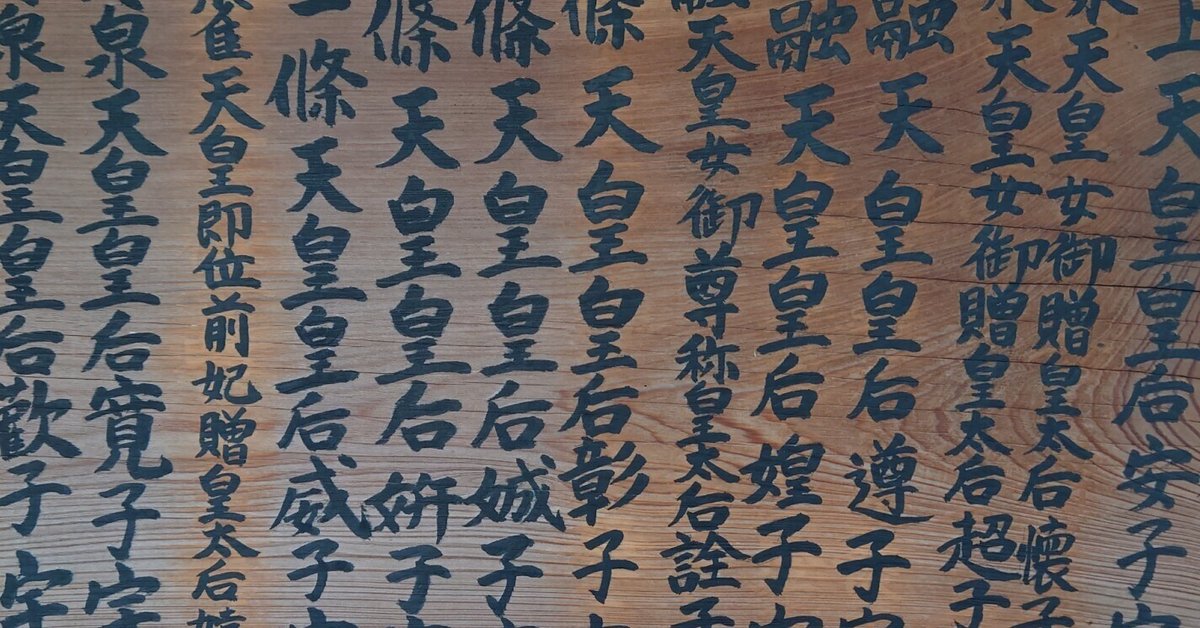 上天皇皇后安子
天皇女御贈皇太后懐子
天皇女御贈皇太后超子
融天皇皇后遵子
融天皇皇后媓子
融天皇女御尊称皇太后詮子
條天皇皇后彰子
條天皇皇后娍子
條天皇皇后妍子
一條天皇皇后威子
雀天皇即位前妃贈皇太后
泉天皇皇后寛子宇
泉天皇皇后歡子宇